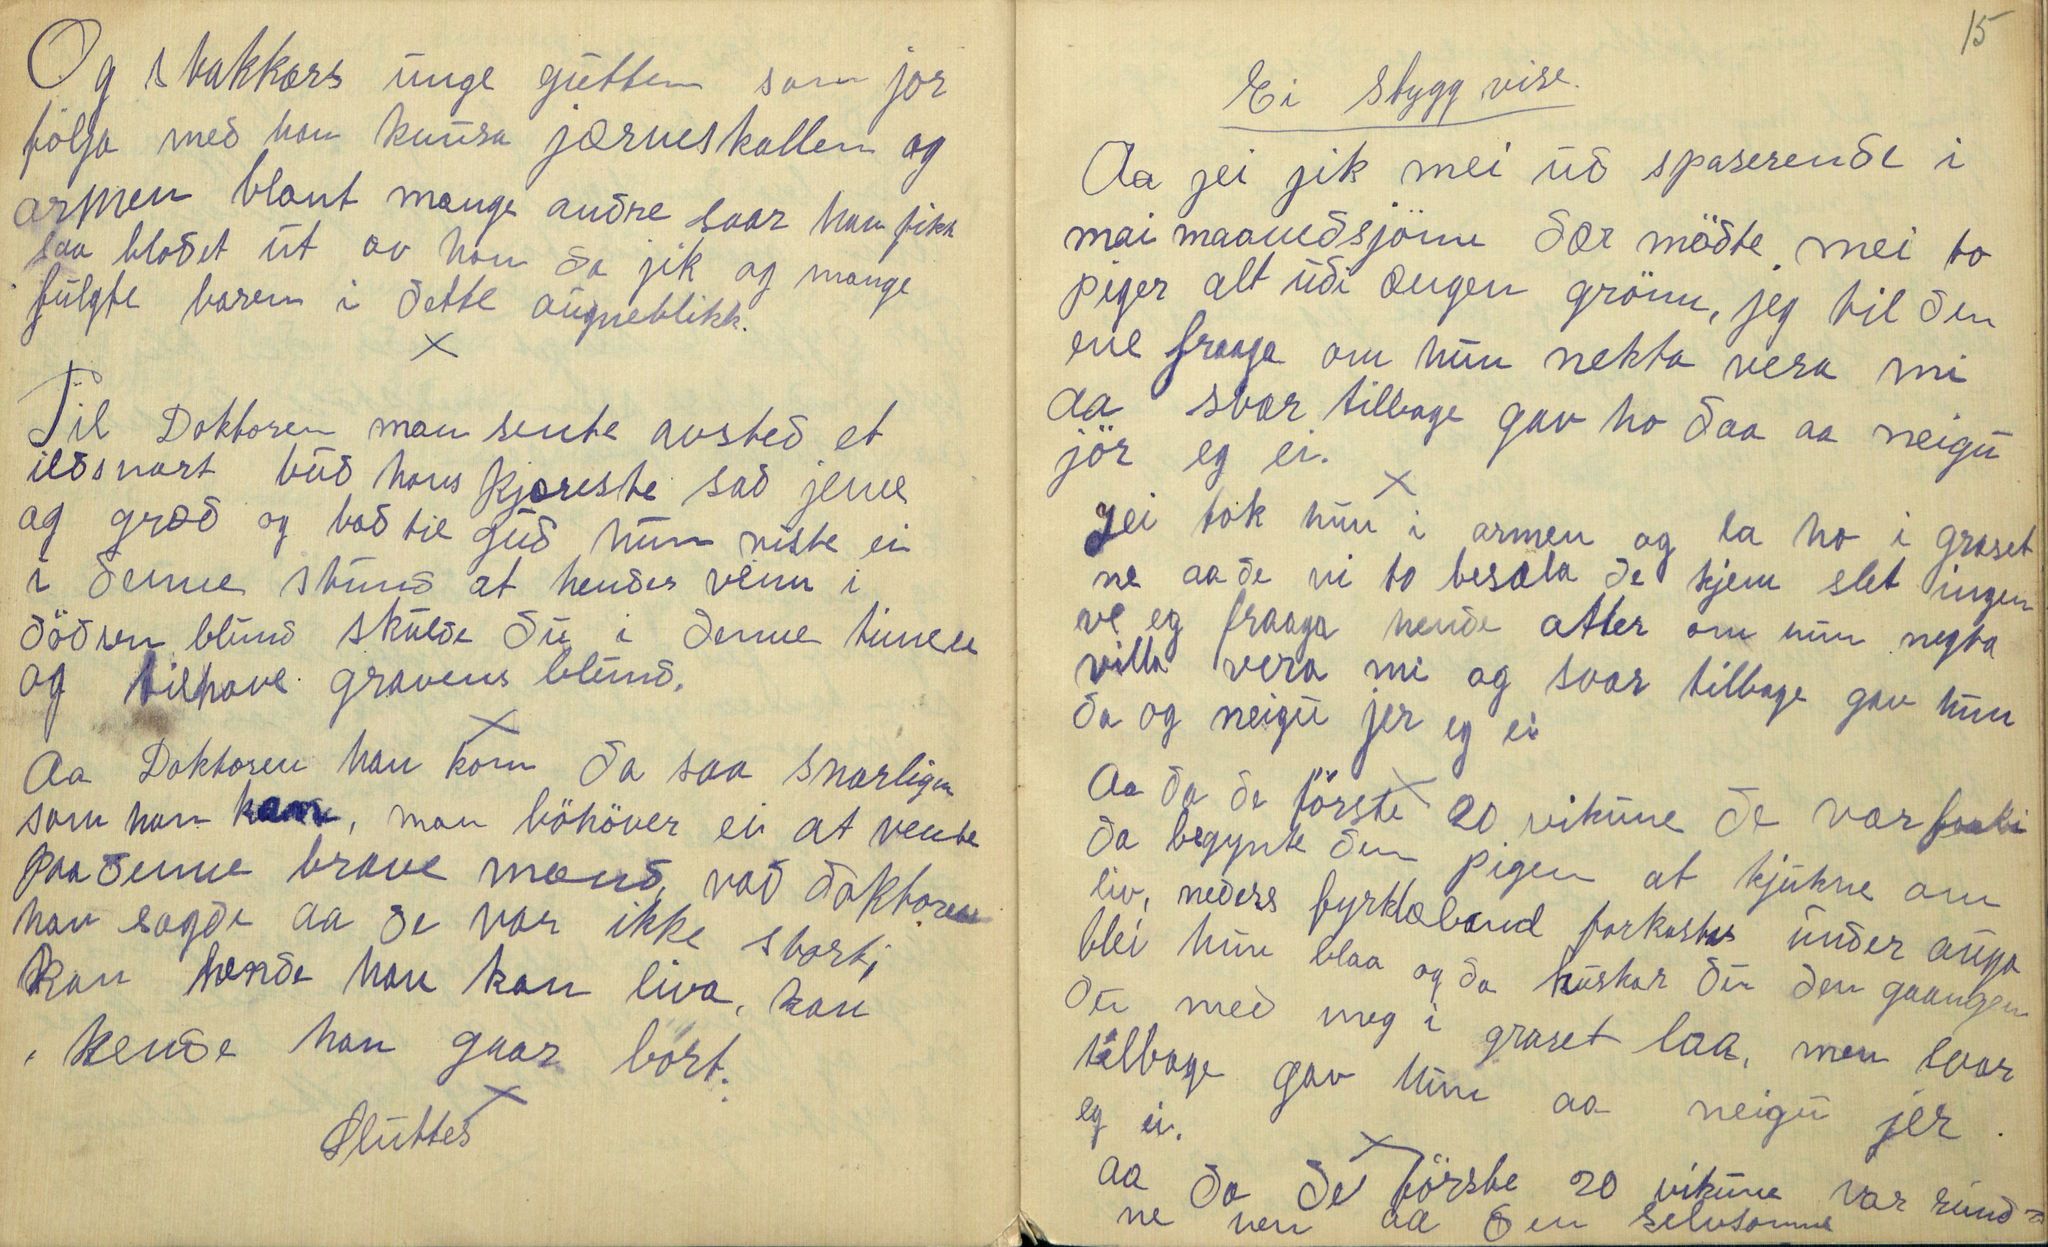 Og stakkars unge gutten som jor
følja med han knusa jærneskallen og
armen blant mange andre saar han fikk
saa blodet ut av han da jik og mange
fulgte baren i dette augneblikk.
x
Til Doktoren man sente avsted et
ildsnart bud hans kjæreste sad jeme
og græd og bad til Gud hun viste ei
i denne stund at hendes venn i
dödsen blund skulde du i denne timen
og tilhave gravens blund.
x
Aa Doktoren han kom da saa snarligen
som han kan, man böhöver ei at vente
paa denne brave mand, vad doktoren
han sagde aa de var ikke stort;
kan hende han kan liva, kan
hende han gaar bort.
x
Sluttes
15
Ei stygg vise.
Aa jei jik mei ud spaserende i
mai maanedsjönn dær mödte mei to
piger alt udi ængen grönn, jeg til den
ene fraaga om hun nekta vera mi
aa svar tilbage gav ho daa aa neigu
jör eg ei.
x
Jei tok hun i armen og la ho i graset
ne aa de vi to besæla de kjem slet ingen
ve eg fraaga hende atter om hun negta
villa vera mi og svar tilbage gav hun
da og neigu jer eg ei
x
Aa da de förste 20 vikune de var
da begynte den pigen at kjukne om
liv, neders fyrklæband forkastas under auga
blei hun blaa og da huskar du den gaangen
du med meg i graset laa, men svar
tilbage gav hun aa neigu jer
eg ei.
x
aa da de förste 20 vikune var rund=
ne nen aa den selvsamme